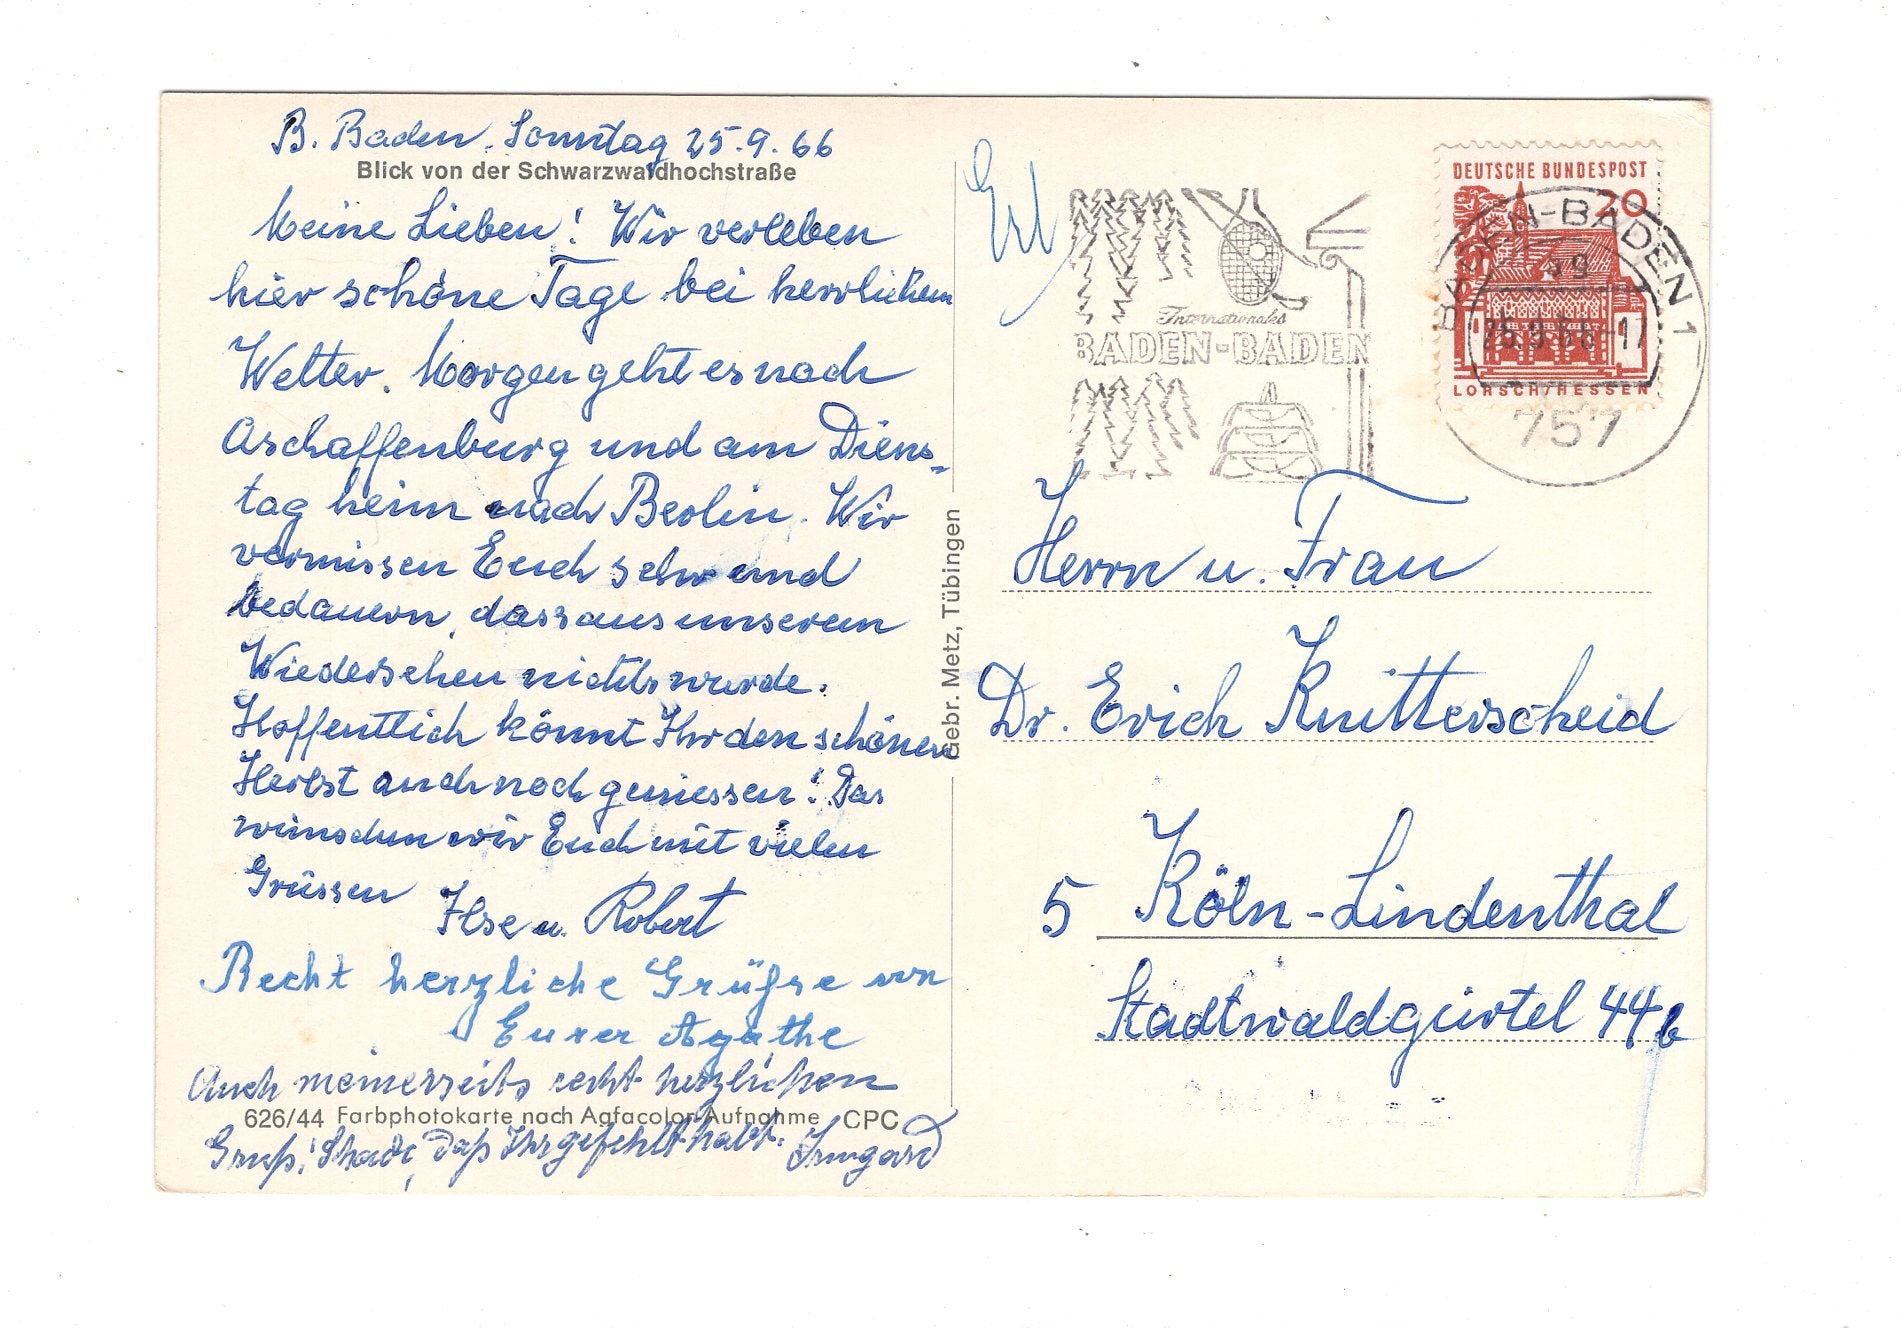 B. Baden, Sonntag 25.9.66
Blick von der Schwarzwaldhochstraße
Meine Lieben! Wir verleben
hier schöne Tage bei herrlichem
Wetter. Morgen geht es nach
Aschaffenburg und am Diens-
tag heim nach Berlin. Wir
vermissen Euch sehr und
bedauern, dass aus unserem
Wiedersehen nichts wurde.
Hoffentlich könnt Ihr den schönen
Herbst auch noch geniessen! Das
wünschen wir Euch mit vielen
Grüssen
Ilse u. Robert
Recht herzliche Grüße von
Eurer Agathe
Auch meinerseits recht herzlichen
626/44 Farbphotokarte nach Agfacolor-Aufnahme CPC
Gruß! Schade, daß Ihr gefehlt habt. Irmgard
Gebr. Metz, Tübingen
Internationales
BADEN-BADEN
DEUTSCHE BUNDESPOST
20
LORSCH/HESSEN
BADEN-BADEN 1
25.9.66-17
757
Herrn u. Frau
Dr. Erich Knitterscheid
5 Köln-Lindenthal
Stadtwaldgürtel 44b